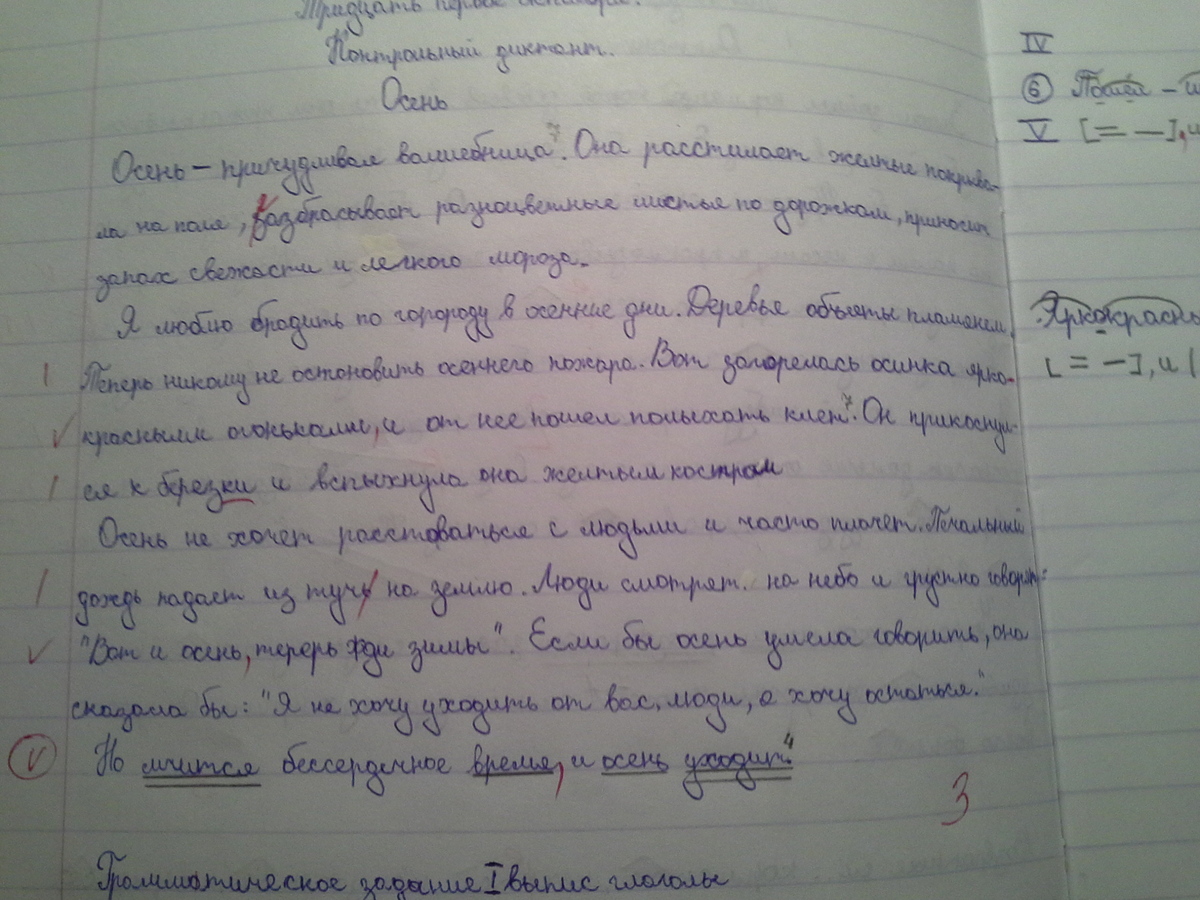 Тридцать первое октября.
Контрольный диктант.
Осень
Осень – причудливая волшебница⁷. Она расстилает желтые покрыва-
ла на поля, разбрасывает разноцветные листья по дорожкам, приносит
запах свежести и легкого мороза.
Я люблю бродить по горороду в осенние дни. Деревья объяты пламенем.
Теперь никому не остановить осеннего пожара. Вот загорелась осинка ярко-
красными огоньками, и от нее пошел полыхать клен⁷. Он прикоснул-
ся к березки и вспыхнула она желтым костром
Осень не хочет расставаться с людьми и часто плачет. Печальний
дождь падает из тучь на землю. Люди смотрят на небо и грустно говорят:
"Вот и осень, теперь жди зимы". Если бы осень умела говорить, она
сказала бы: "Я не хочу уходить от вас, люди, а хочу остаться."
V Но мчится бессердечное время, и осень уходит.⁴
3
Грамматическое задание I выпис глаголы
IV
6 Пошёл –
V [= –], и
Яркокрасны
[= –], и [